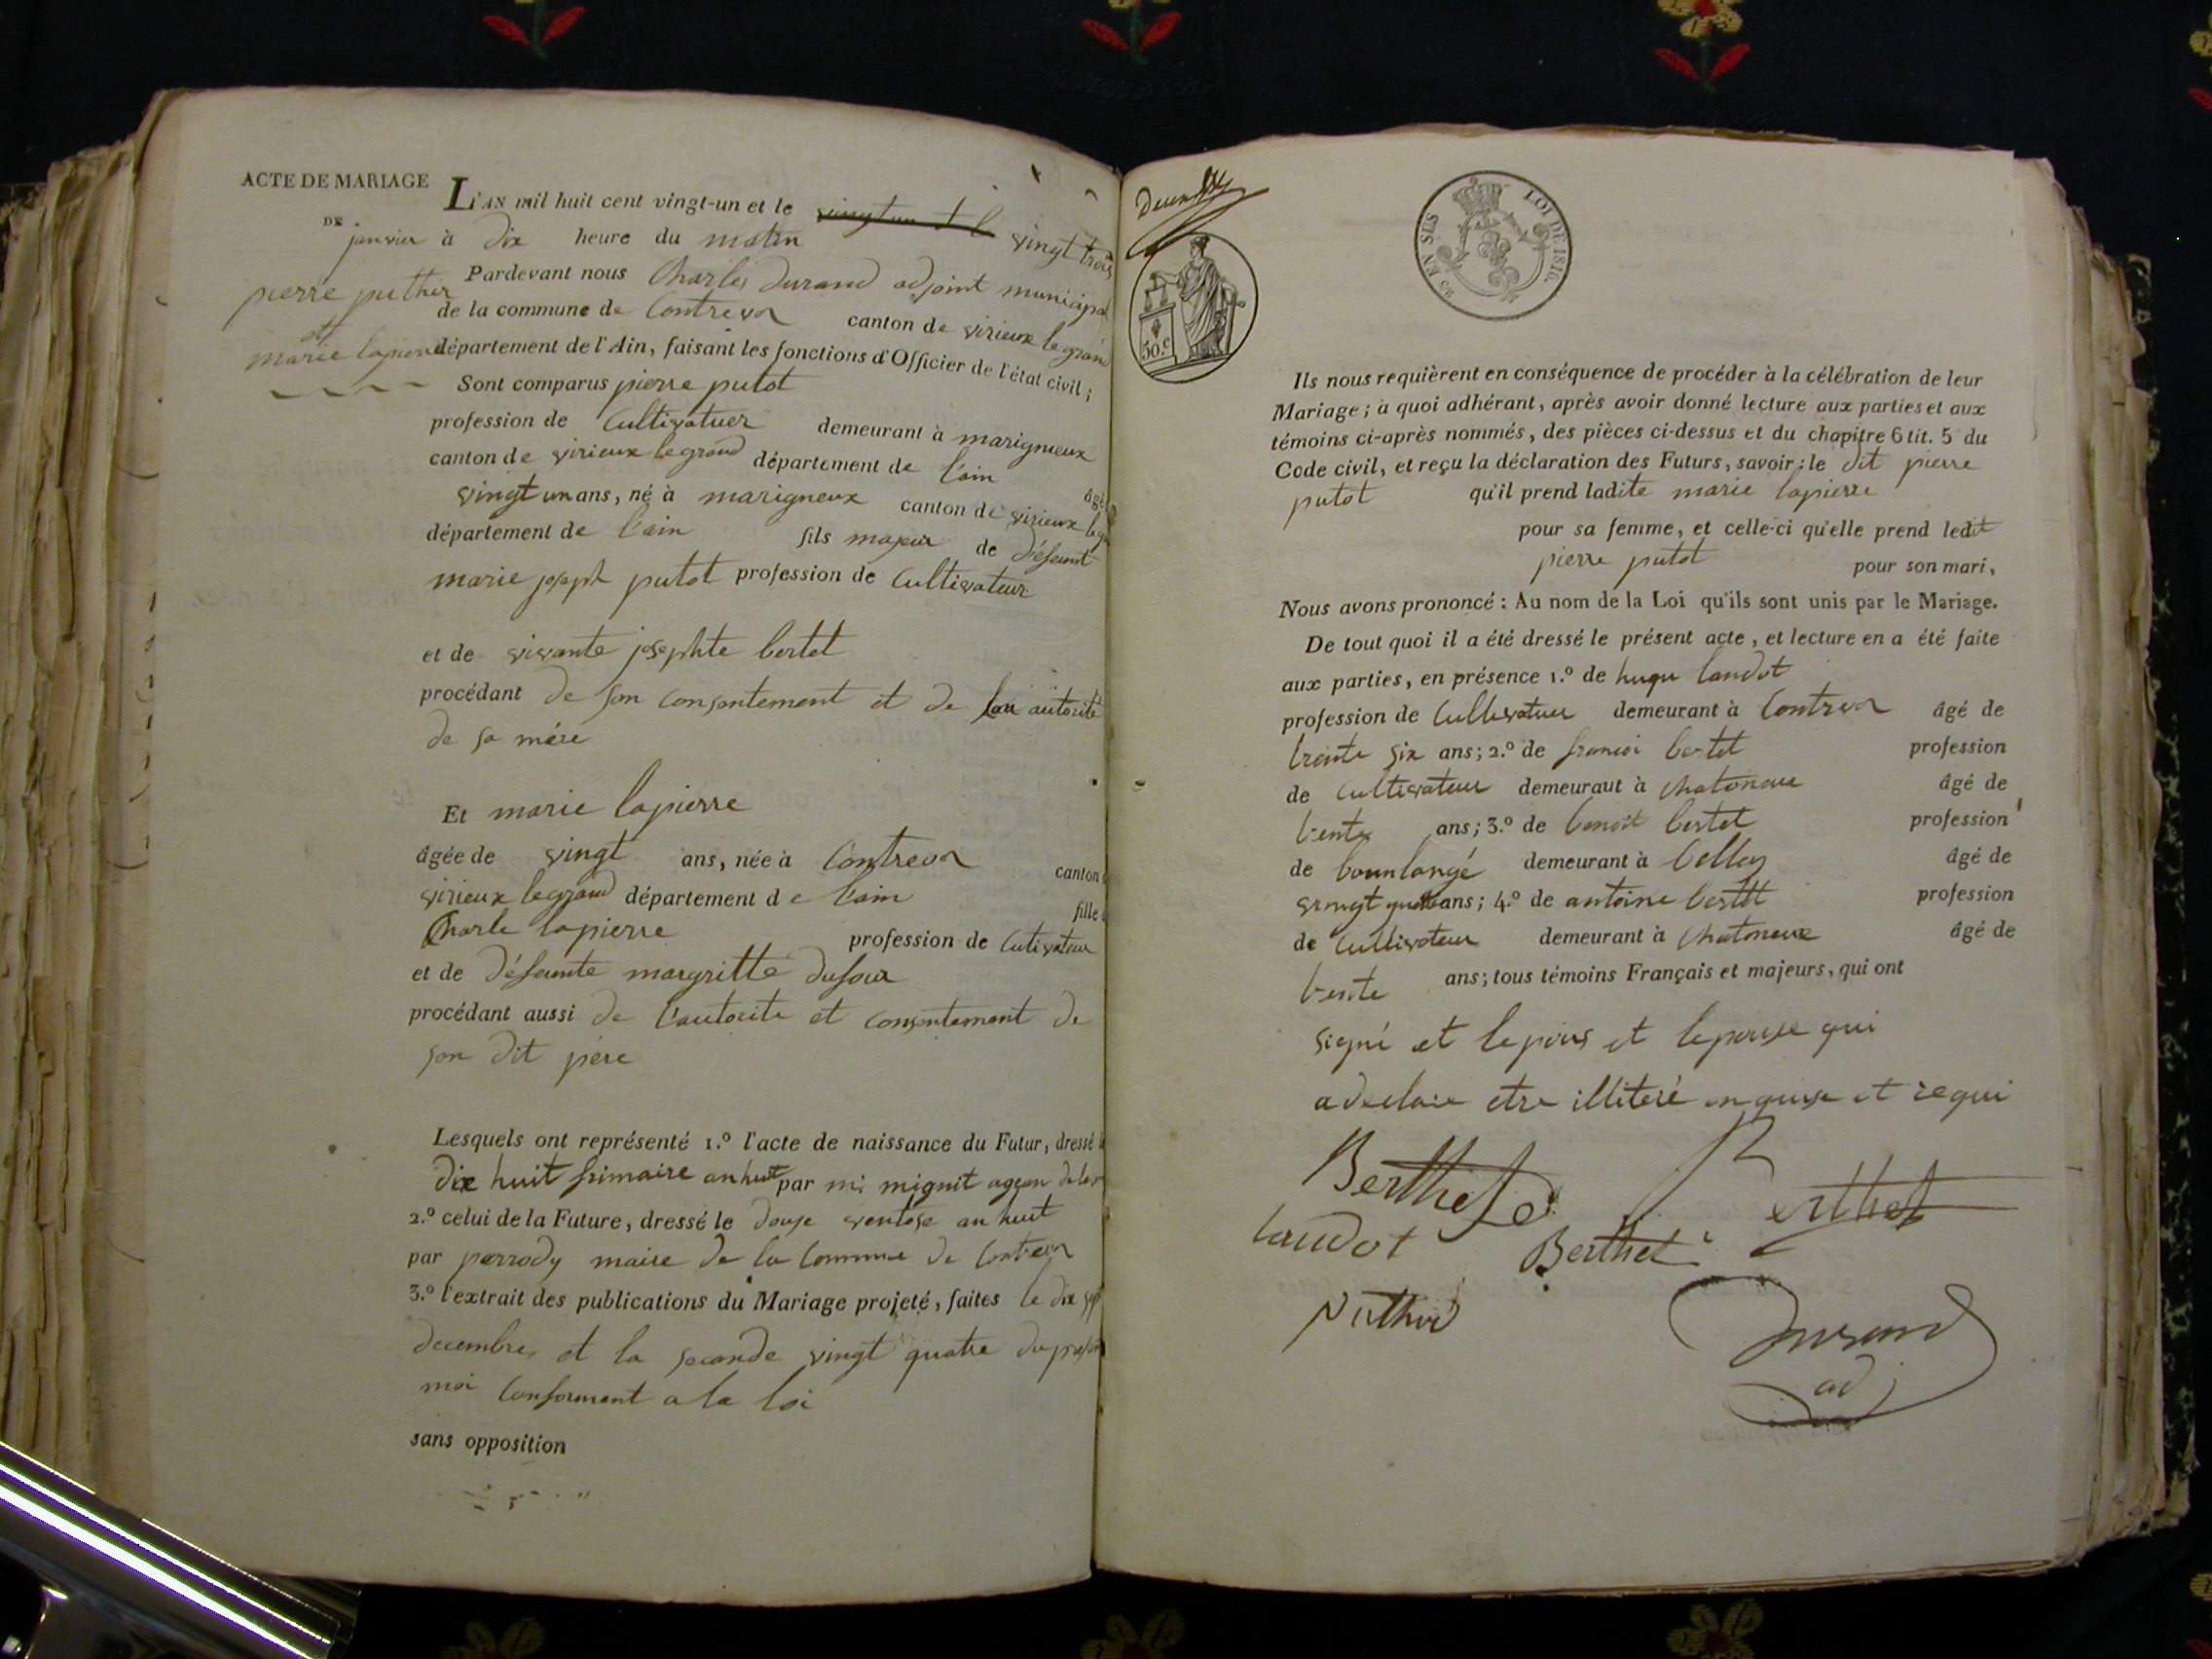 ACTE DE MARIAGE
DE
pierre puthier
et
marie lapierre
L'AN mil huit cent vingt-un et le vingt trois
janvier à dix heure du matin
Pardevant nous Charles Durand adjoint municipal
de la commune de Contrevoz canton de virieux le grand
département de l'Ain, faisant les fonctions d'Officier de l'état civil;
Sont comparus pierre putot
profession de Cultivatuer demeurant à marignieux
canton de virieux le grand département de l'ain âgé
vingt un ans, né à marigneux canton de virieux le
département de l'ain fils majeur de défeunt
marie joseph putot profession de Cultivateur
et de vivante josephte bertet
procédant de son consentement et de autorité
de sa mére
Et marie lapierre
âgée de vingt ans, née à Contrevoz canton
virieux legrand département de l'ain fille
Charle lapierre profession de Cutivateur
et de défeunte margritte dufour
procédant aussi de l'autorite et consentement de
son dit pére
Lesquels ont représenté 1.º l'acte de naissance du Futur, dressé
dix huit frimaire an huit par mignit
2.º celui de la Future, dressé le douze ventose an huit
par perrody maire de la commune de Contrevoz
3.º l'extrait des publications du Mariage projeté, faites le dix
decembre et la seconde vingt quatre du
moi conforment a la loi
sans opposition
50.c
25 EN SUS
LOI DE 1816.
Ils nous requièrent en conséquence de procéder à la célébration de leur
Mariage; à quoi adhérant, après avoir donné lecture aux parties et aux
témoins ci-après nommés, des pièces ci-dessus et du chapitre 6 tit. 5 du
Code civil, et reçu la déclaration des Futurs, savoir: le dit pierre
putot qu'il prend ladite marie lapierre
pour sa femme, et celle-ci qu'elle prend ledit
pierre putot pour son mari,
Nous avons prononcé: Au nom de la Loi qu'ils sont unis par le Mariage.
De tout quoi il a été dressé le présent acte, et lecture en a été faite
aux parties, en présence 1.º de hugu landot
profession de Cultivatuer demeurant à Contrevoz âgé de
trente six ans; 2.º de francoi bertet profession
de Cultivateur demeurant à âgé de
trente ans; 3.º de benoit bertet profession
de bounlangé demeurant à belley âgé de
ans; 4.º de antoine bertet profession
de Cultivateur demeurant à chatoneux âgé de
trente ans; tous témoins Français et majeurs, qui ont
signé et lepous et lepouse qui
a declare etre illiteré enquise et requi
Berthet
Berthet
landot
Berthet
Puthod
Durand
adj